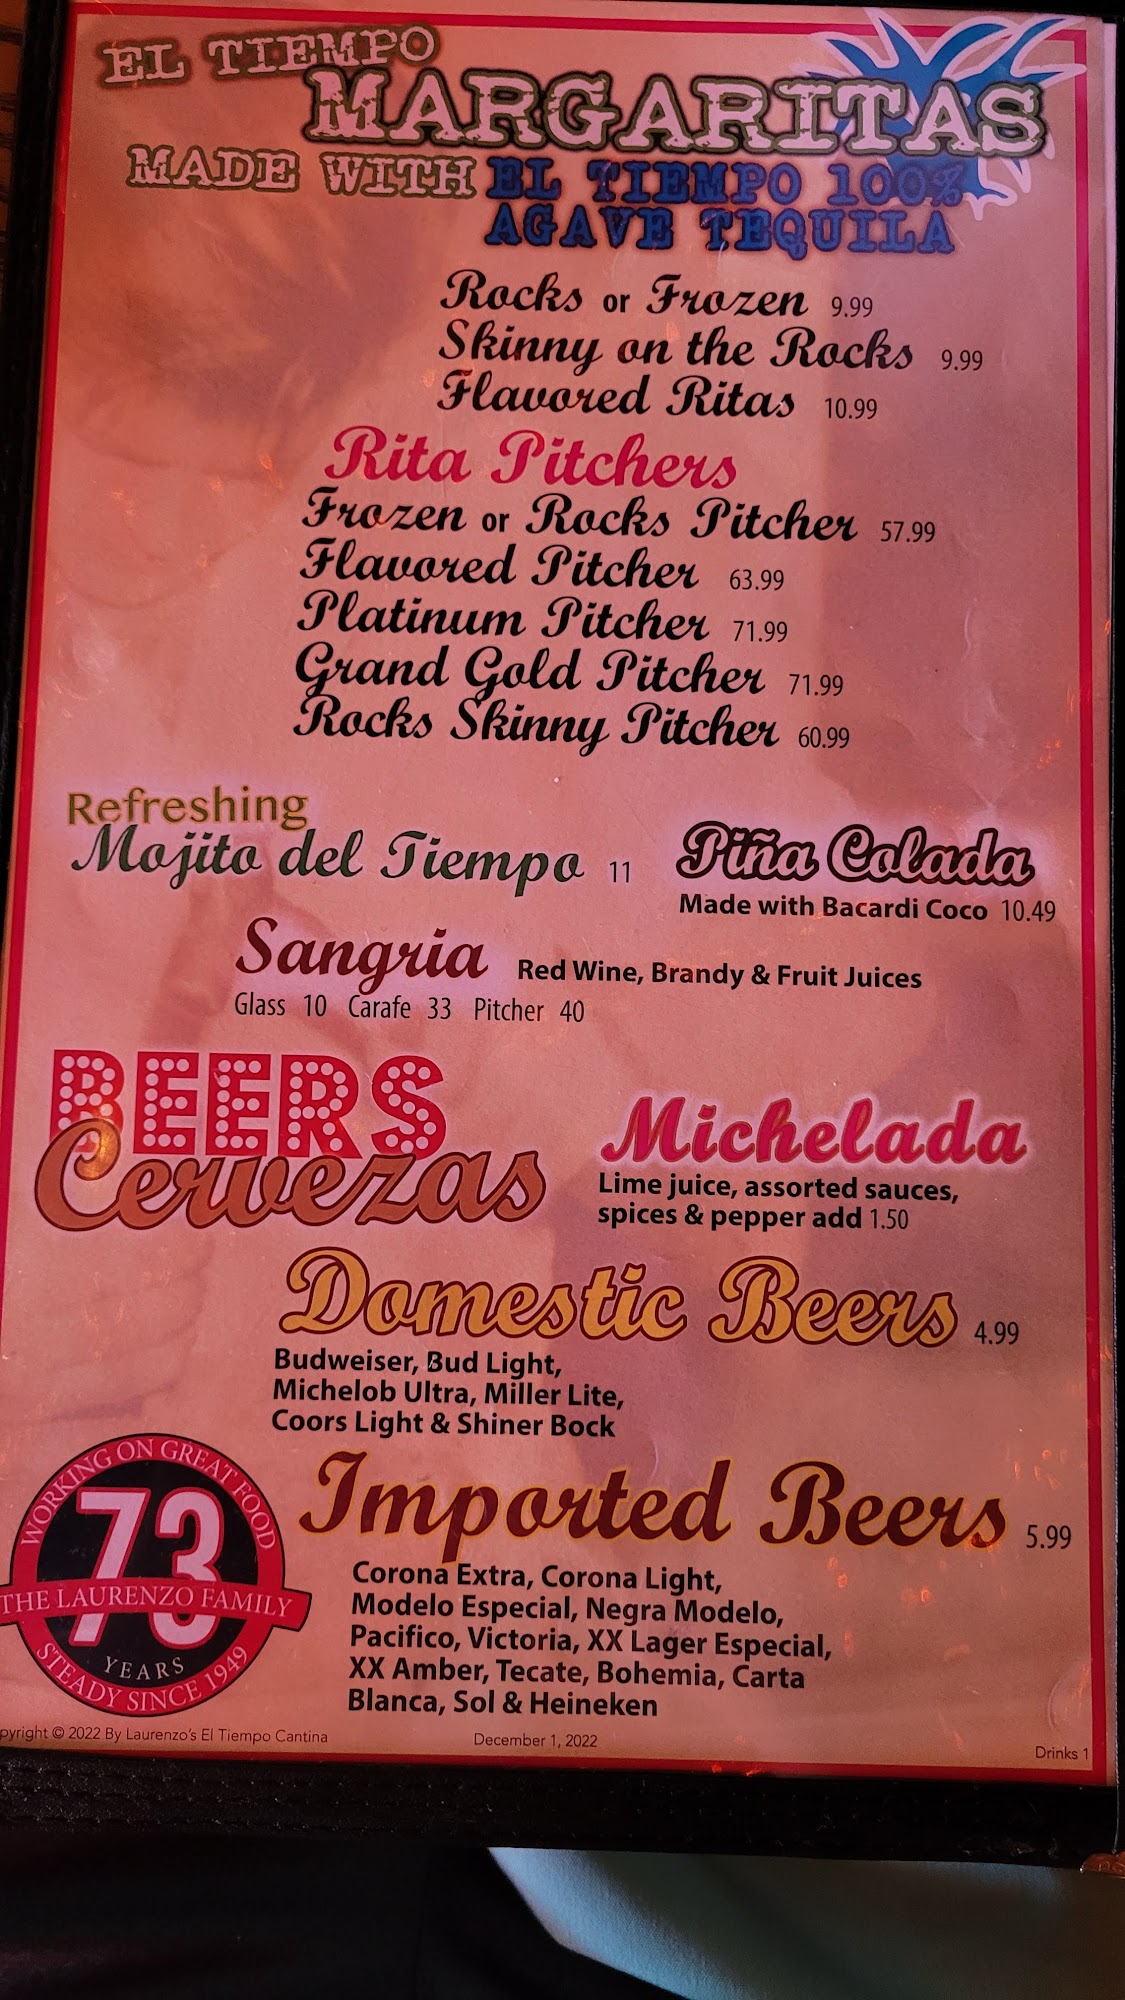 EL TIEMPO
MARGARITAS
MADE WITH EL TIEMPO 100%
AGAVE TEQUILA
Rocks or Frozen 9.99
Skinny on the Rocks 9.99
Flavored Ritas 10.99
Rita Pitchers
Frozen or Rocks Pitcher 57.99
Flavored Pitcher 63.99
Platinum Pitcher 71.99
Grand Gold Pitcher 71.99
Rocks Skinny Pitcher 60.99
Refreshing
Mojito del Tiempo 11
Piña Colada
Made with Bacardi Coco 10.49
Sangria Red Wine, Brandy & Fruit Juices
Glass 10 Carafe 33 Pitcher 40
BEERS
Cervezas
Michelada
Lime juice, assorted sauces,
spices & pepper add 1.50
Domestic Beers 4.99
Budweiser, Bud Light,
Michelob Ultra, Miller Lite,
Coors Light & Shiner Bock
Imported Beers 5.99
Corona Extra, Corona Light,
Modelo Especial, Negra Modelo,
Pacifico, Victoria, XX Lager Especial,
XX Amber, Tecate, Bohemia, Carta
Blanca, Sol & Heineken
WORKING ON GREAT FOOD
73
THE LAURENZO FAMILY
YEARS
STEADY SINCE 1949
pyright © 2022 By Laurenzo's El Tiempo Cantina
December 1, 2022
Drinks 1